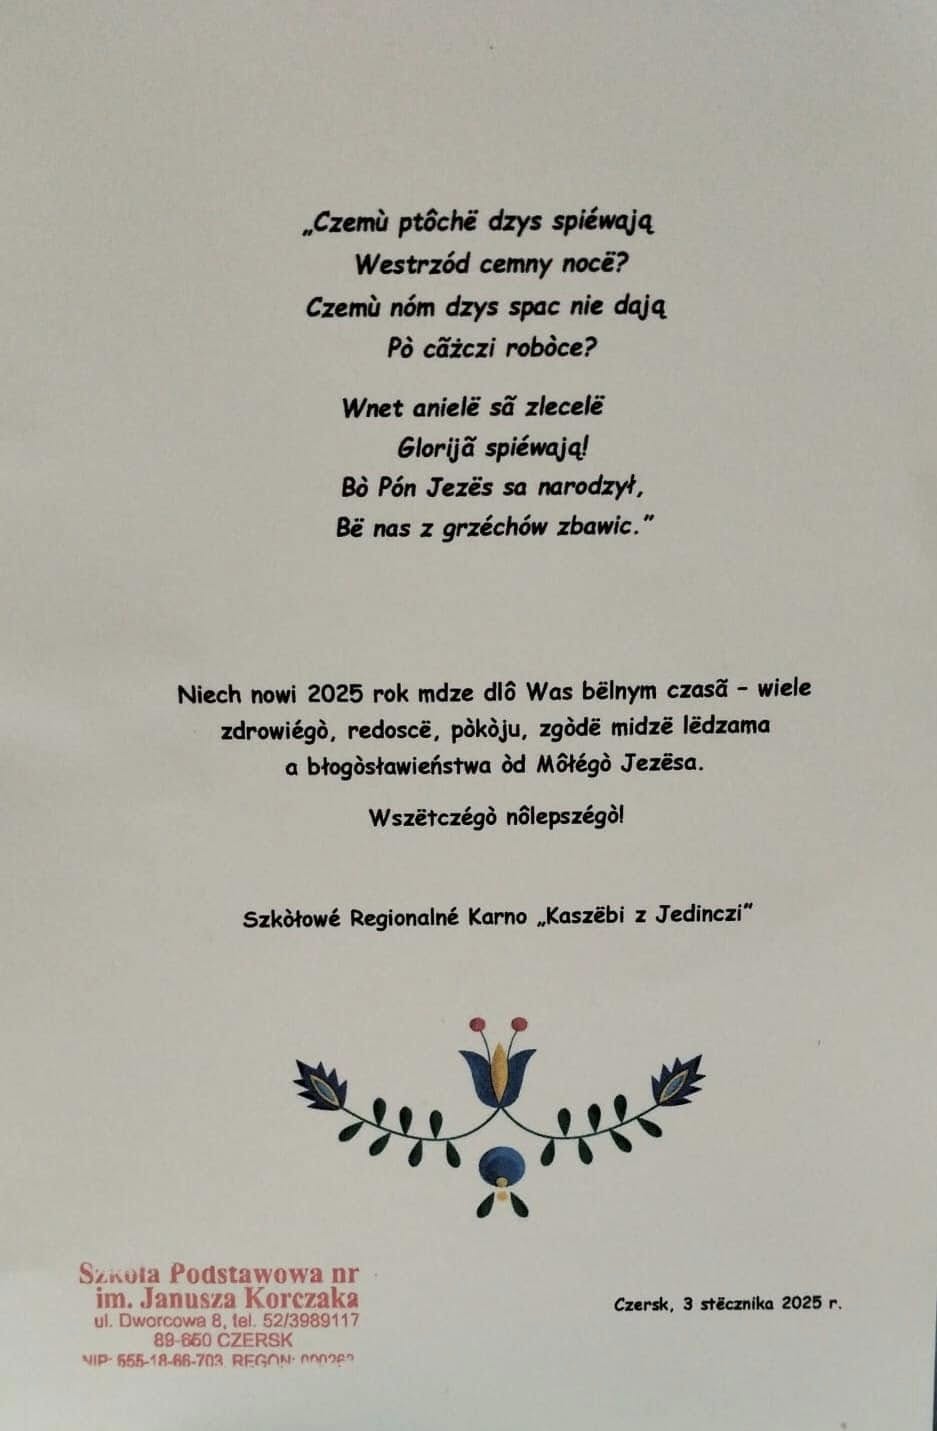 „Czemù ptôchë dzys spiéwają
Westrzód cemny nocë?
Czemù nóm dzys spac nie dają
Pò cãżczi robòce?
Wnet anielë sã zlecelë
Glorijã spiéwają!
Bò Pón Jezës sa narodzył,
Bë nas z grzéchów zbawic.”
Niech nowi 2025 rok mdze dlô Was bëlnym czasã - wiele
zdrowiégò, redoscë, pòkòju, zgòdë midzë lëdzama
a błogòsławieństwa òd Môłégò Jezësa.
Wszëtczégò nôlepszégò!
Szkòłowé Regionalné Karno „Kaszëbi z Jedinczi”
Szkoła Podstawowa nr
im. Janusza Korczaka
ul. Dworcowa 8, tel. 52/3989117
89-650 CZERSK
NIP: 555-18-66-703, REGON:
Czersk, 3 stëcznika 2025 r.